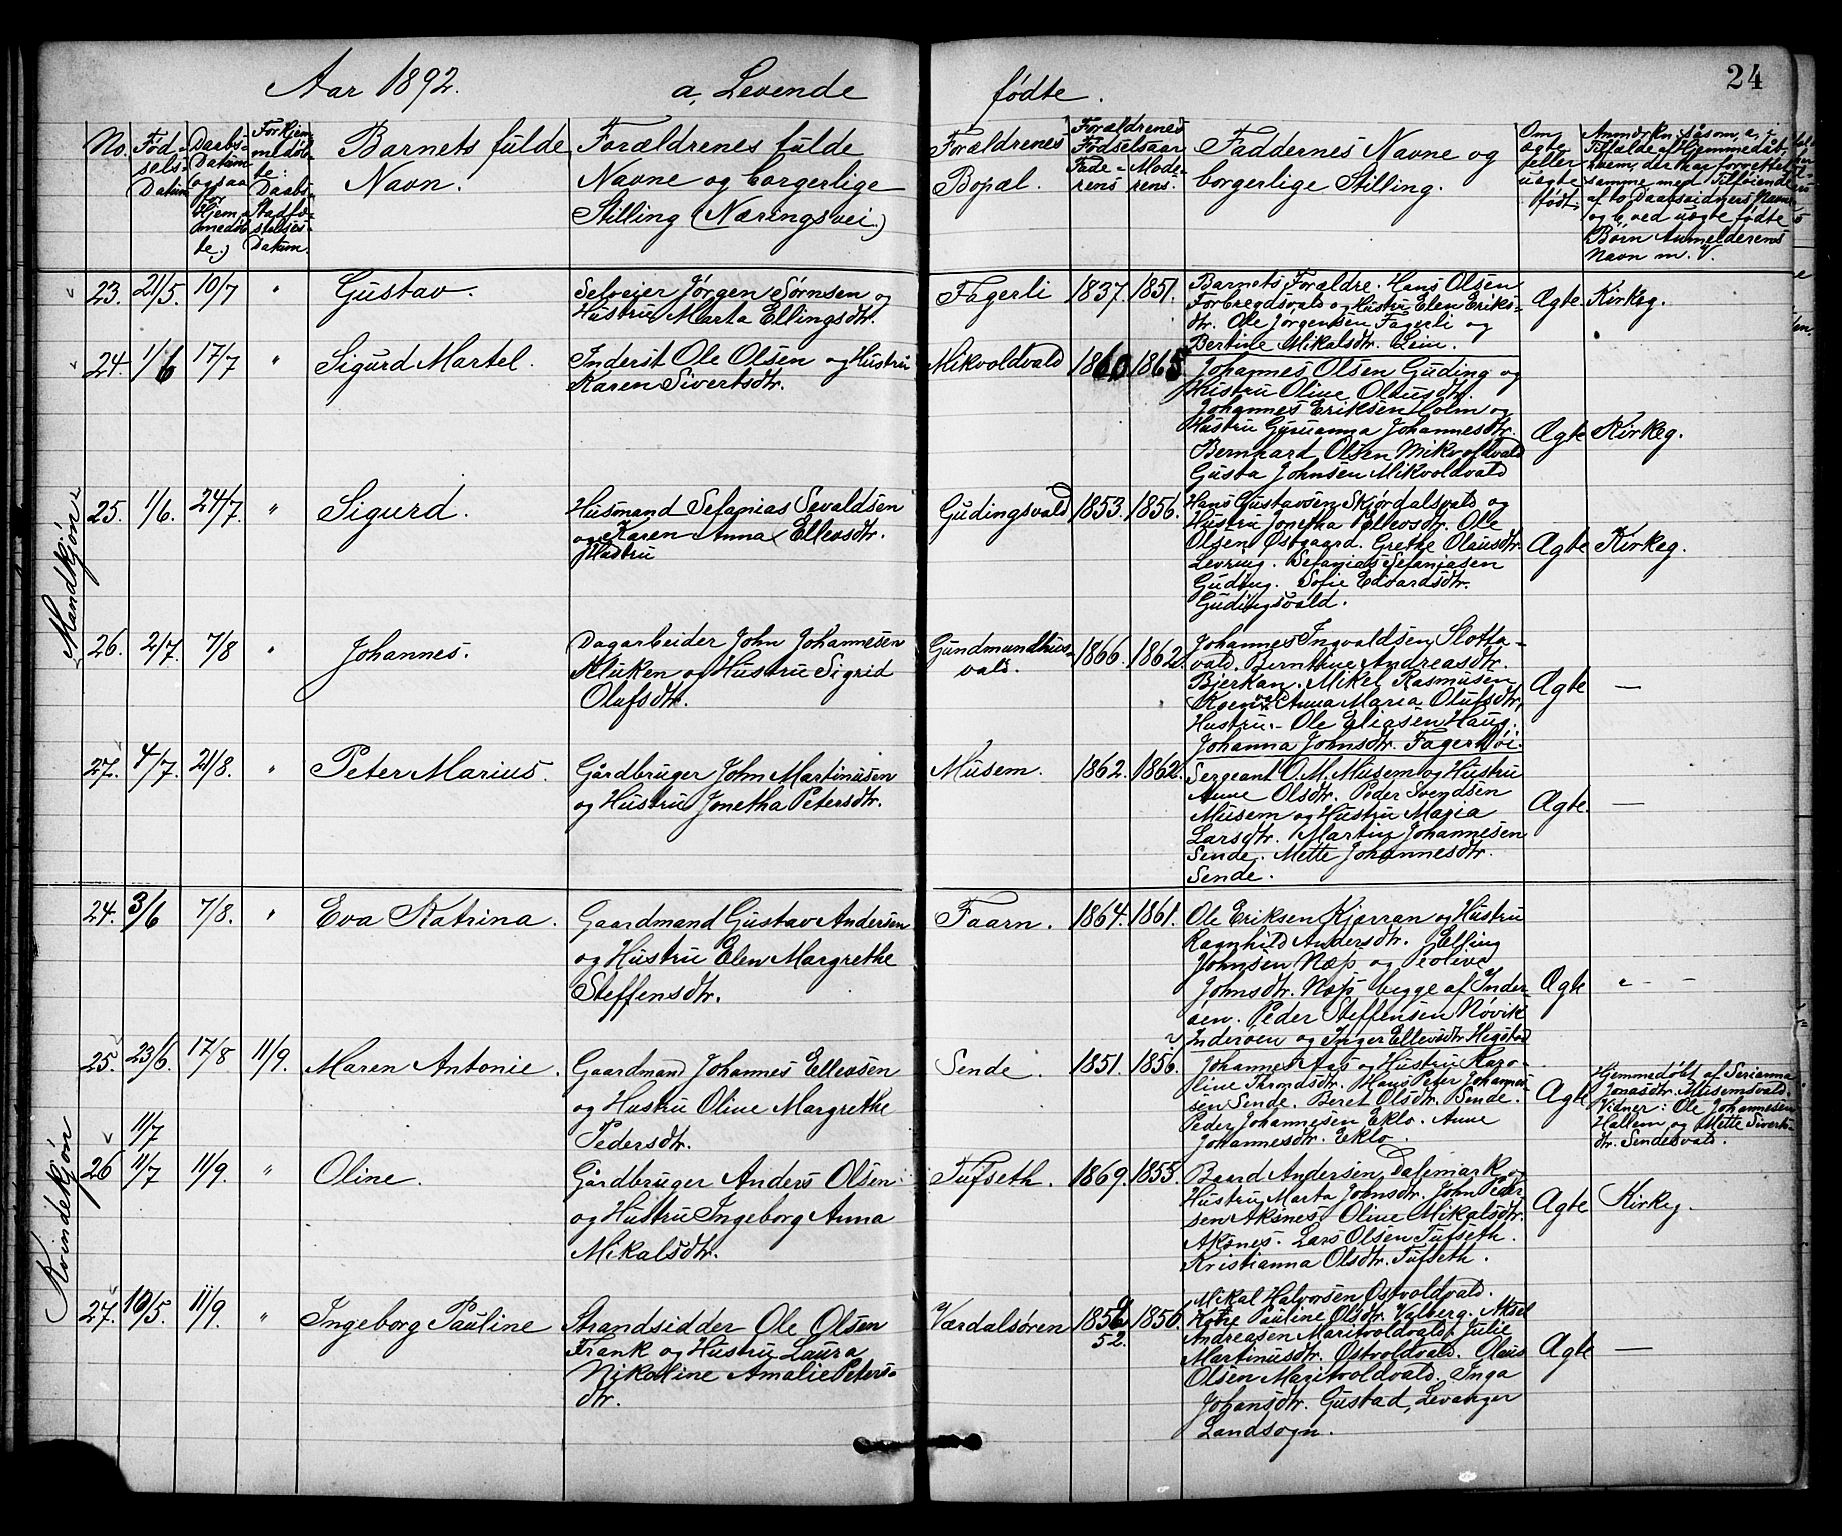 Aar 1892. a, Levende fødte. 24
No.
Fød-
sels-
Datum
Daabs-
Datum
ogsaa
Hjem-
medøb-
te.)
For Hjem-
medøb-
te:
Daabs-
Stadfæ-
stelses-
Datum.
Barnets fulde
Navn.
Forældrenes fulde
Navne og borgerlige
Stilling (Næringsvei.)
Forældrenes
Bopæl.
Forældrenes
Fødselsaar
Fade-
rens
Mode-
rens.
Faddernes Navne og
borgerlige Stilling.
Om
ægte
eller
uægte
født.
Anmærkn. såsom, a, i
Tilfælde af Hjemmedåb,
hvem, der har forrettet
samme med Tilføiende
af to Daabsvidners Navne
og b, ved uægte fødte
Børn Anmelderens
Navn m. V.
Mandkjøn
23. 21/5. 10/7 " Gustav.
Selveier Jörgen Sörnsen og
Hustru Marta Ellingsdtr.
Fagerli 1837. 1851.
Barnets Forældre. Hans Olsen
Forbregdsvald og Hustru Elen Eriks-
dtr. Ole Jörgensen Fagerli og
Bertine Mikalsdtr. Lein.
Ægte Kirkeg.
24. 1/6 17/7 " Sigurd Martel.
Inderst Ole Olsen og Hustru
Karen Sivertsdtr.
Mikvoldvald 1860 1865
Johannes Olsen Guding og
Hustru Oline Olausdtr.
Johannes Eriksen Holm og
Hustru Guruanna Johannesdtr.
Bernhard Olsen Mikvoldvald
Gusta Johnsen Mikvoldvald
Ægte Kirkeg.
25. 1/6. 24/7. " Sigurd.
Husmand Sefanias Sevaldsen
og Karen Anna Ellevsdtr.
Hustru
Gudingsvald 1853. 1856.
Hans Gustavsen Skjördalsvald og
Hustru Jonetha Ellevsdtr. Ole
Olsen Østgaard. Grethe Olausdtr.
Levring. Sefanias Sefaniasen
Guding. Sofie Edvardsdtr.
Gudingsvald.
Ægte Kirkeg.
26. 2/7. 7/8 " Johannes.
Dagarbeider John Johannesen
Kluken og Hustru Sigrid
Olufsdtr.
Gundmundhus-
vald. 1866. 1862.
Johannes Ingvaldsen Slotta-
vald. Berntine Andreasdtr.
Bjerkan. Mikel Rasmusen
Anna Maria Olufsdtr.
Hustru. Ole Eliasen Haug.
Johanna Johnsdtr. Fagerhöi.
Ægte —
27. 4/7. 21/8. " Peter Marius.
Gårdbruger John Martinusen
og Hustru Jonetha Petersdtr.
Musem. 1862. 1862.
Sergeant O. M. Musem og Hustru
Anne Olsdtr. Peder Svendsen
Musem og Hustru Maria
Larsdtr. Martin Johannesen
Sende. Mette Johannesdtr.
Sende.
Ægte. —
Kvindekjøn
24. 3/6 7/8. " Eva Katrina.
Gaardmand Gustav Andersen
og Hustru Elen Margrethe
Steffensdtr.
Faarn. 1864. 1861.
Ole Eriksen Kjærran og Hustru
Ragnhild Andersdtr. Elling
Johnsen Næss og Peolive
Johnsdtr. Næss begge af Inder-
øen. Peder Steffensen Növik
Inderöen og Inger Ellevsdtr Hegstad
Ægte " - -
25. 23/6 17/8 11/9. Maren Antonie.
Gaardmand Johannes Ellevsen
og Hustru Oline Margrethe
Pedersdtr.
Sende. 1851. 1856.
Johannes Aas og Hustru Karo-
line Trondsdtr. Hans Peter Johannes-
sen Sende. Beret Olsdtr. Sende.
Peder Johannesen Eklo. Anne
Johannesdtr. Eklo.
Ægte
Hjemmedøbt af Serianna
Jonasdtr. Musemsvald.
Vidner: Ole Johannesen
Hallem og Mette Siverts-
dtr. Sendesvald.
11/7
26 11/7 11/9. " Oline.
Gårdbruger Anders Olsen
og Hustru Ingeborg Anna
Mikalsdtr.
Tufseth. 1869. 1855.
Baard Andersen Dalemark og
Hustru Marta Johnsdtr. John Peder-
sen Aksnes. Oline Mikalsdtr.
Aksnes. Lars Olsen Tufseth.
Kristianna Olsdtr. Tufseth.
Ægte Kirkeg.
27. 10/5. 11/9. " Ingeborg Pauline
Strandsidder Ole Olsen
Frank og Hustru Laura
Nikoline Amalie Peters-
dtr.
Værdalsören 1856
52. 1856.
Mikal Halvorsen Østvoldvald.
Pauline Olsdtr. Valberg. Aksel
Andreasen Maritvoldvald. Julie
Martinusdtr. Østvoldvald. Olaus
Olsen Maritvoldvald. Inga
Johansdtr. Gustad, Levanger
Landsogn.
Ægte —